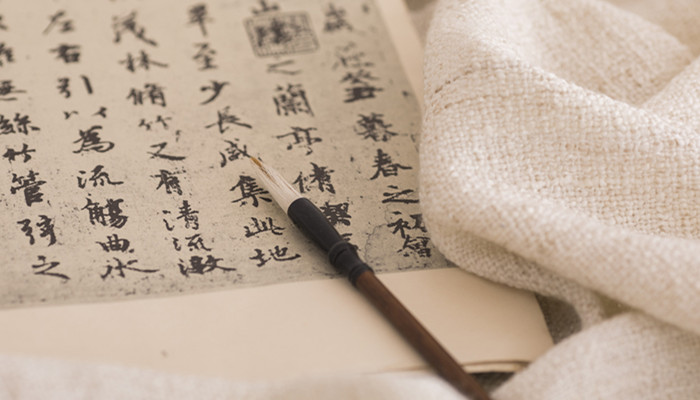 癸丑暮春之初會
山陰之蘭亭脩禊
畢至少長咸集此地
茂林脩竹又有清流激
左右引以為流觴曲水
無絲竹管弦之